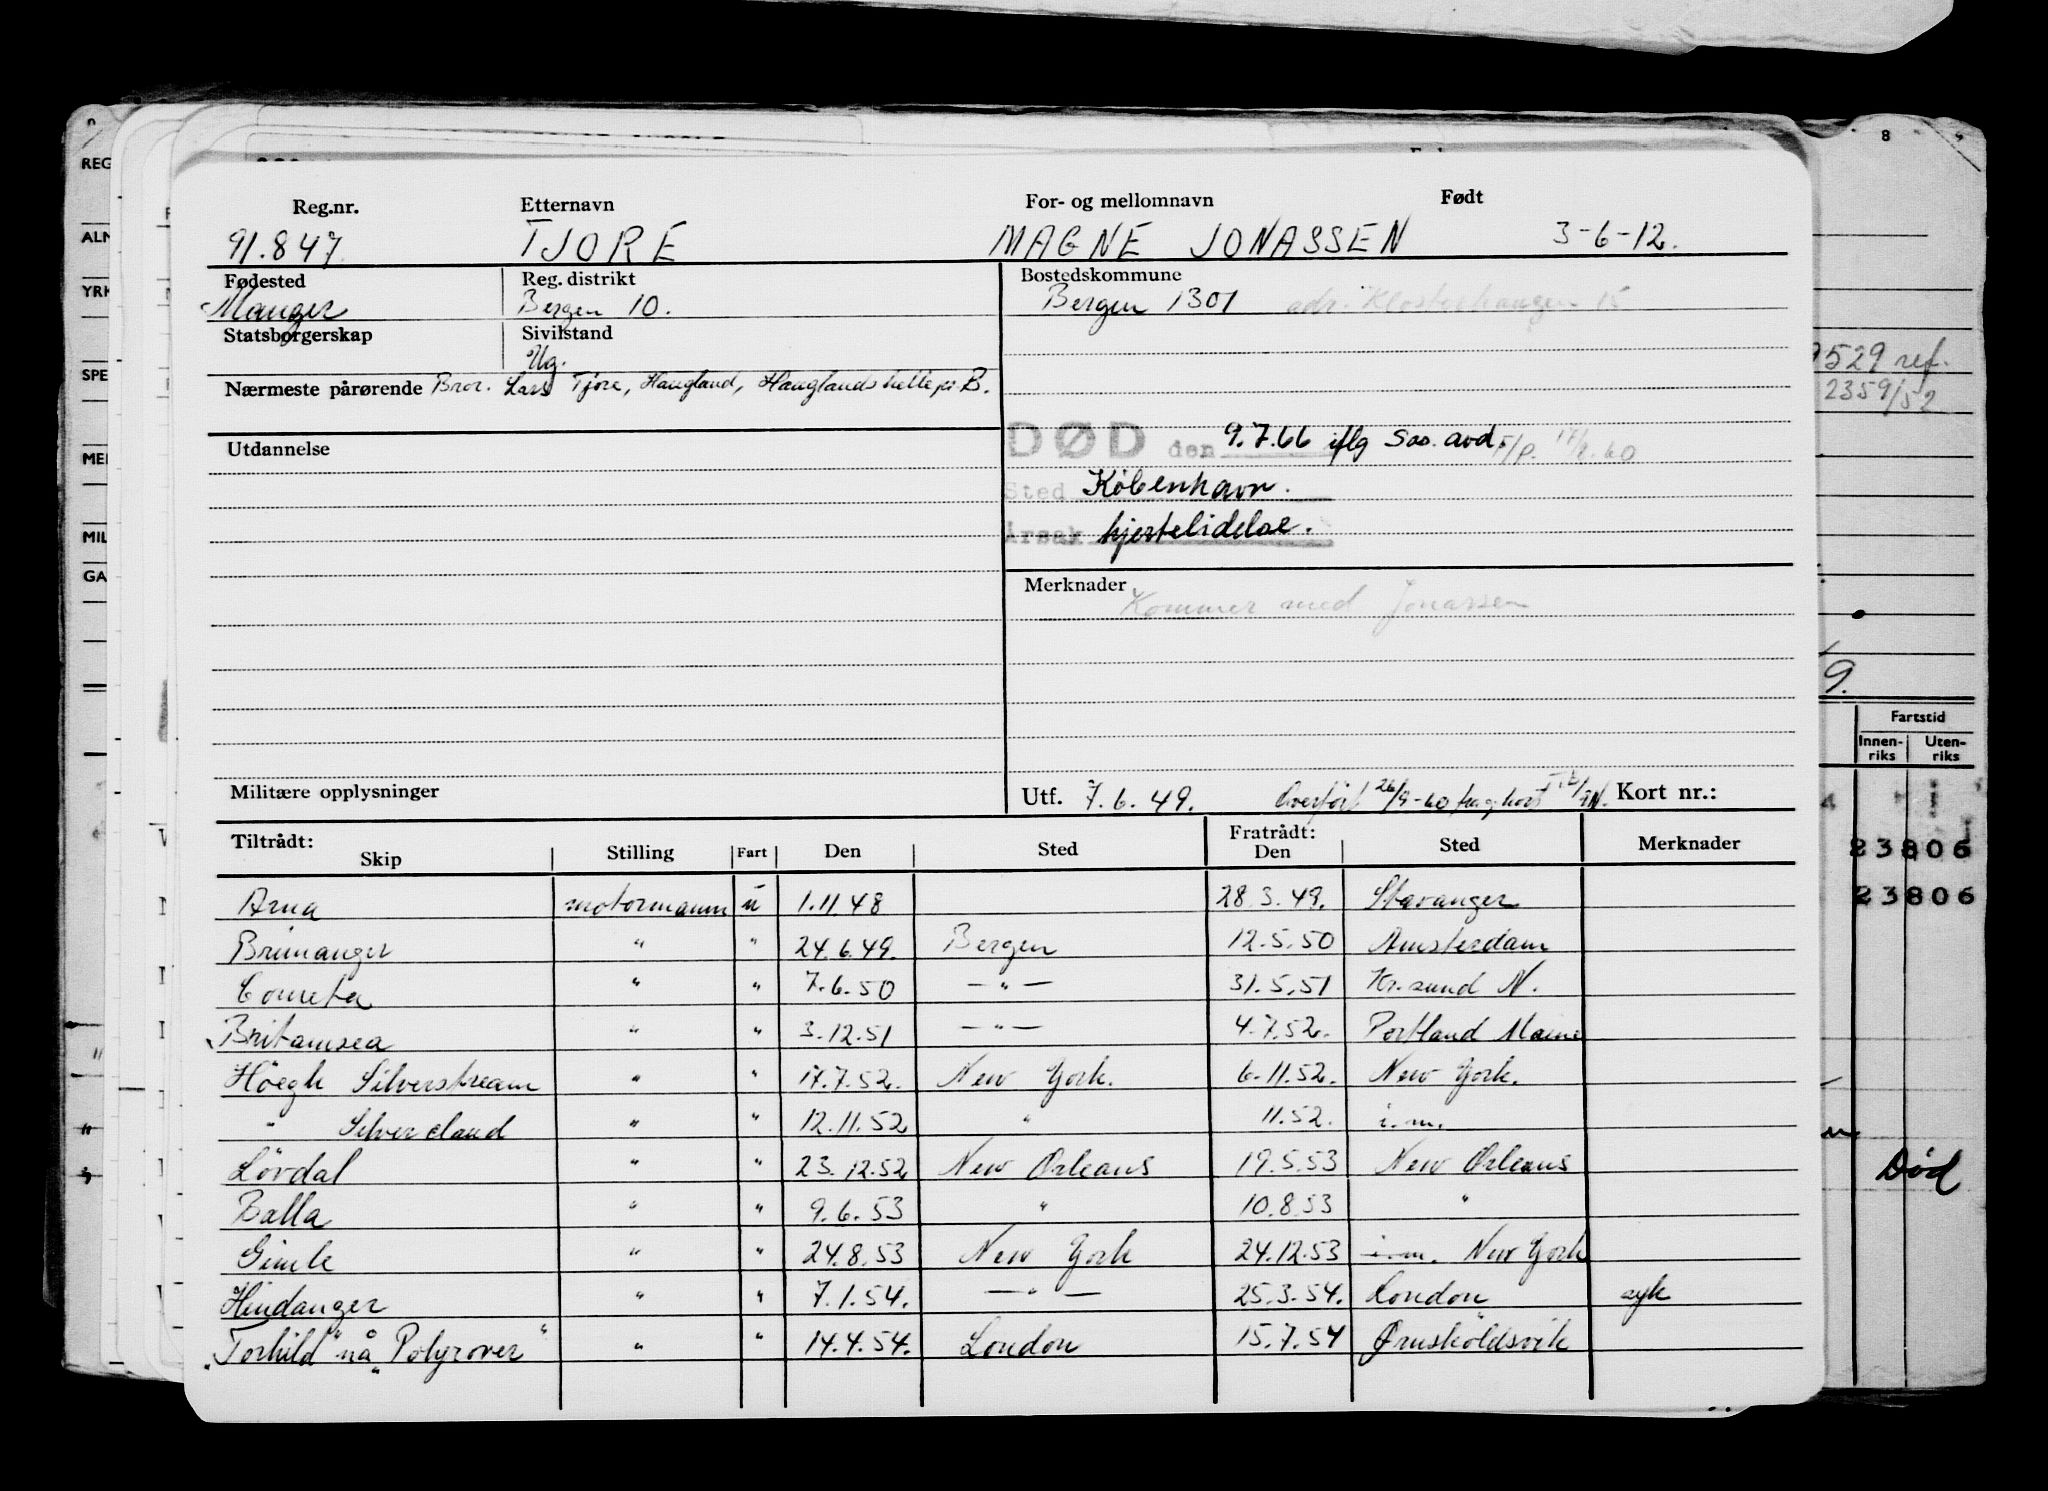 Reg.nr. Etternavn For- og mellomnavn Født
91.847. TJORE MAGNE JONASSEN 3-6-12.
Fødested Reg. distrikt Bostedskommune
Manger Bergen 10. Bergen 1301 adr. Klosterhaugen 15
Statsborgerskap Sivilstand
Ug.
Nærmeste pårørende Bror. Lars Tjore, Haugland, Hauglandshella pr. B.
Utdannelse
DØD den 9.7.66 iflg Sos. avd.
Sted København.
Årsak hjertelidelse.
Merknader
Kommer med Jonassen
Militære opplysninger Utf. 7.6.49. Overført 26/9-60 Kort nr.:
Tiltrådt: Fratrådt:
Skip Stilling Fart Den Sted Den Sted Merknader
Arna motormann u 1.11.48 28.3.49. Stavanger
Brimanger " " 24.6.49. Bergen 12.5.50 Amsterdam
Cometa " " 7.6.50 — " — 31.5.51 Kr.sund N.
Britamsea " " 3.12.51 — " — 4.7.52. Portland Maine
Höegh Silverstream " " 17.7.52. New York. 6.11.52. New York.
" Silvercloud " " 12.11.52 " 11.52. i.m.
Lövdal " " 23.12.52 New Orleans 19.5.53 New Orleans
Balla " " 9.6.53 " 10.8.53 "
Gimle " " 24.8.53 New York 24.12.53 i.m. New York
Hindanger " " 7.1.54. — " — 25.3.54. London syk
"Torhild" nå "Polyrover" " " 14.4.54. London 15.7.54 Ørnsköldsvik
8
REG
ALM
YRK
SPE
MIL
GA
529 ref.
2359/52
9.
Fartstid
Innen-riks Uten-riks
23806
23806
Død